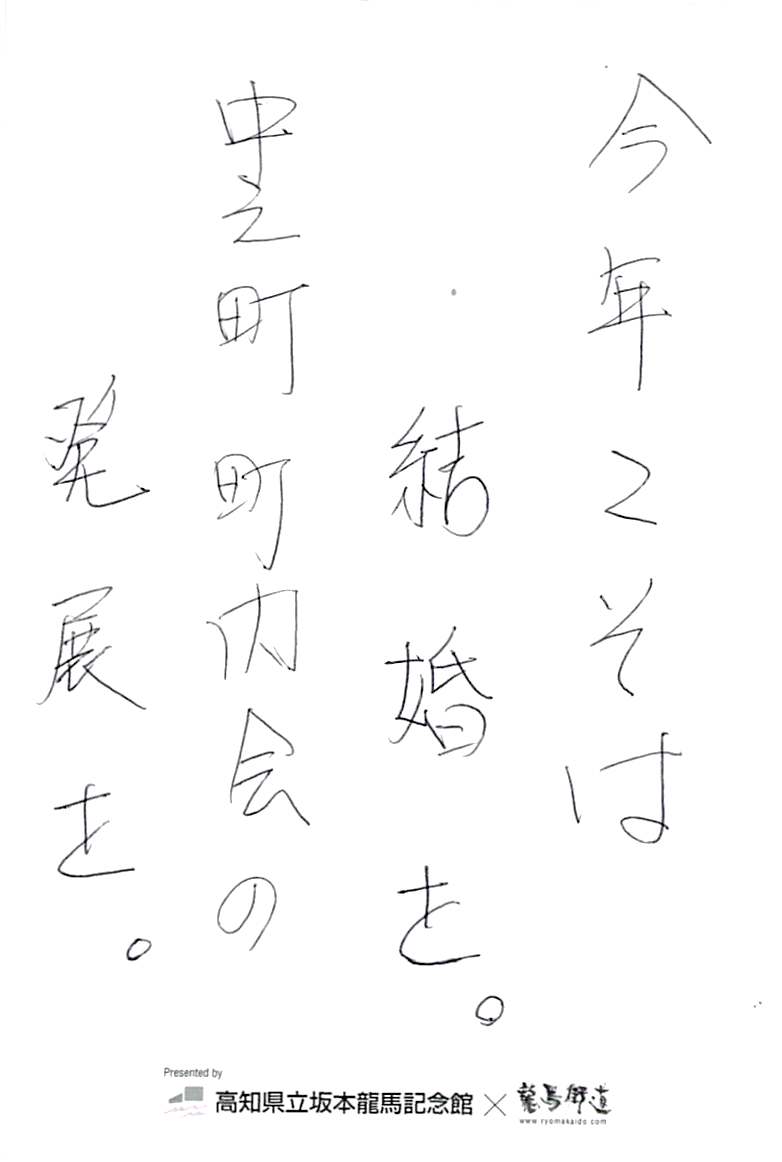 今年こそは
結婚を。
中之町町内会の
発展を。
Presented by
高知県立坂本龍馬記念館×龍馬街道
www.ryomakaido.com